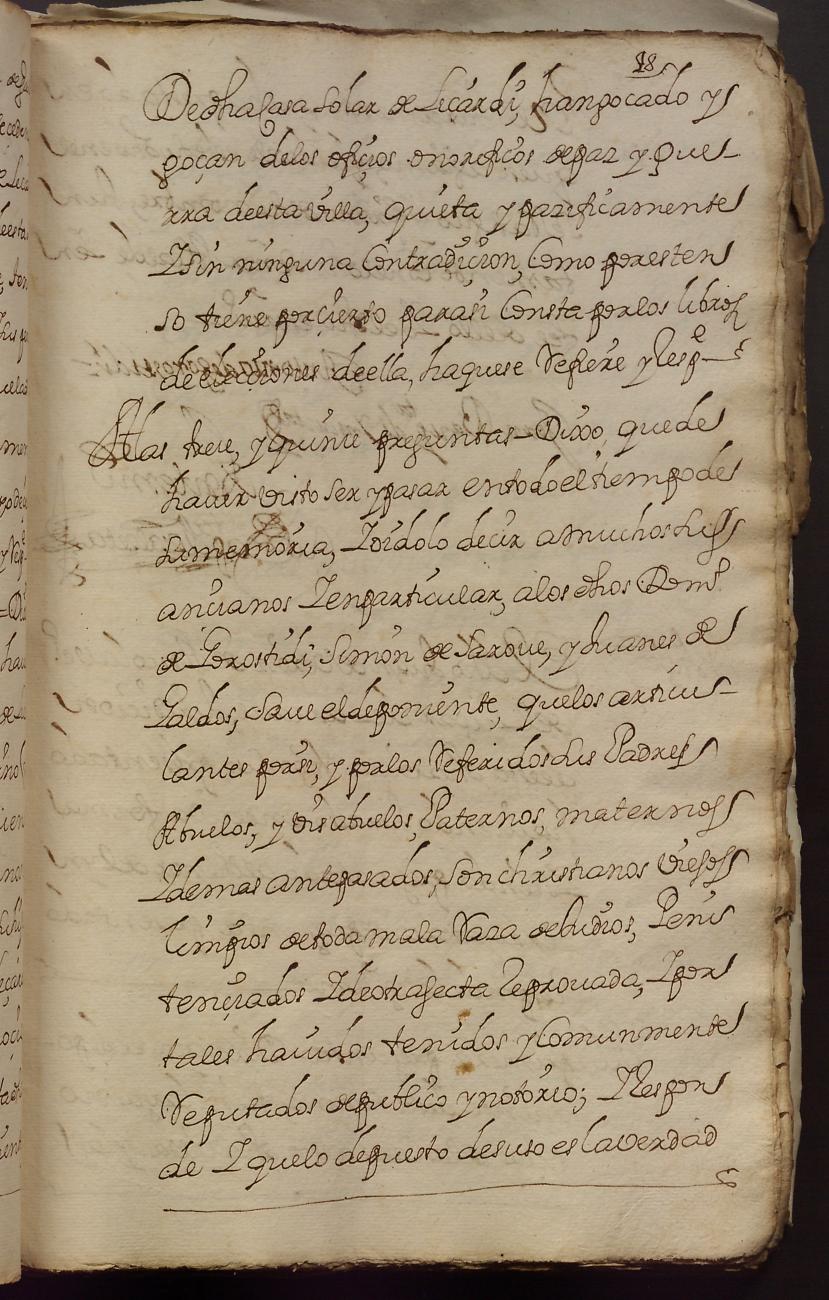 18
De dha Casa Solar de Liçardi, han goçado y
goçan de los ofiçios onorificos de paz y Gue-
rra de esta Villa, quieta y pazificamente
Y sin ninguna Contradiçion, Como por esten
so tiene por çierto para si Consta por los libros
de elecçiones de ella, ha que se Refiere y Resp.e
A las trece, y quinçe preguntas = Dixo, que de
haver visto ser y pasar en todo el tiempo de
Su memoria, Y oidolo decir a muchos Sus
ançianos Y en particular, a los dhos Dom.o
de Gorostidi, Simon de Sarove, y Juanes de
Galdos, Save el deponiente, que los articu-
lantes por si, y por los Referidos Sus Padres
Abuelos, y visabuelos, Paternos, maternos
Y demas antepasados, Son christianos viejos
limpios de toda mala Raza de Judios, Peni
tençiados Y de otra Secta Reprouada, Y por
tales havidos tenidos y Comunmente
Reputados de publico y notorio; Y Respon
de Y que lo depuesto de suso es la verdad